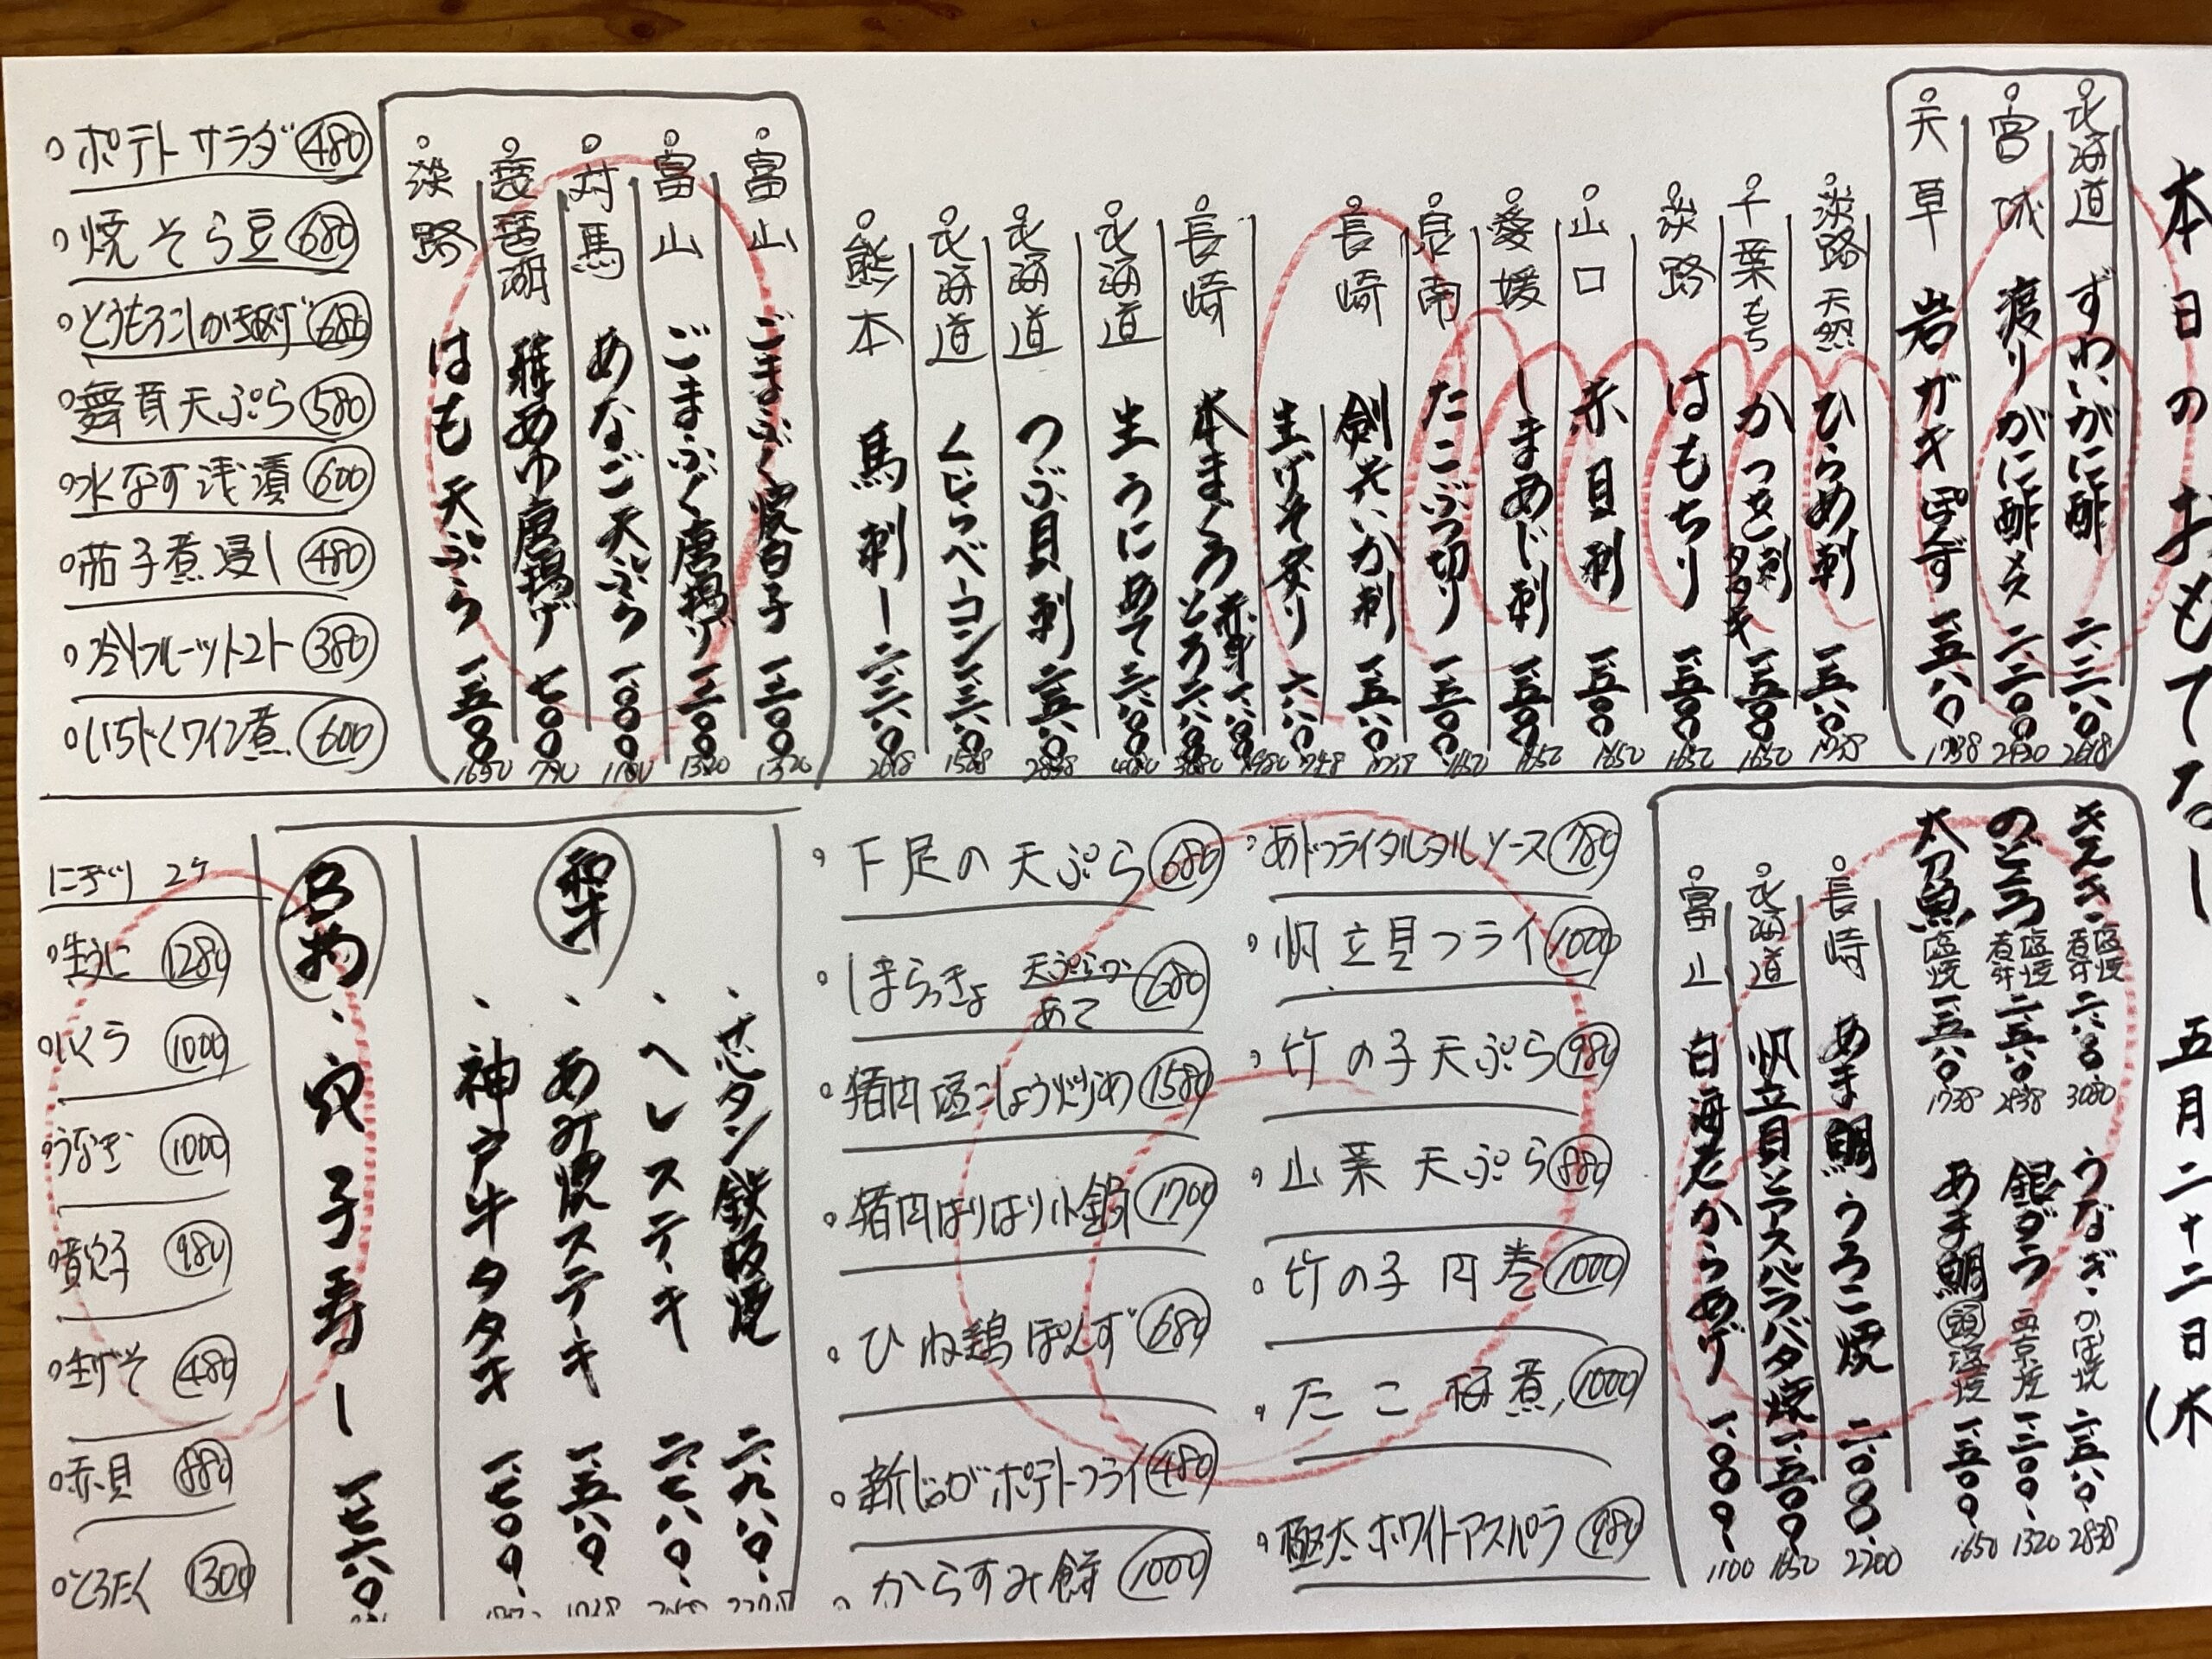 本日のおもてなし 五月二十二日(木
北海道 ずわいがに酢 二、三八〇 2618
宮城 渡りがに酢 メス 二、二〇〇 2420
天草 岩ガキぽんず 一、五八〇 1738
淡路 天然 ひらめ刺 一、五八〇 1738
千葉 もち かつを刺 タタキ 一、五〇〇 1650
淡路 はもちり 一、五〇〇 1650
山口 赤目刺 一、五〇〇 1650
愛媛 しまあじ刺 一、五〇〇 1650
泉南 たこぶつ切り 一、五〇〇 1650
長崎 剣先いか刺 一、五八〇 1738
生げそ炙り 六八〇 748
長崎 本まぐろ 赤身 一、八〇〇 1980 とろ 二、八〇〇 3080
北海道 生うにあて
北海道 つぶ貝刺
北海道 くじらベーコン 一、三八〇 1518
熊本 馬刺し 二、三八〇 2618
富山 ごまふぐ 焼白子 一、二〇〇 1320
富山 ごまふぐ唐揚げ 一、二〇〇 1320
対馬 あなご天ぷら 一、〇〇〇 1100
琵琶湖 稚あゆ唐揚げ 七〇〇 770
淡路 はも天ぷら 一、五〇〇 1650
ポテトサラダ 480
焼そら豆 680
とうもろこしかき揚げ 680
舞茸天ぷら 580
水なす浅漬 600
茄子煮浸し 480
冷やしフルーツトマト 380
いちじくワイン煮 600
きんき 塩焼 煮付 二、八〇〇 3080
のどぐろ 塩焼 煮付 二、五八〇 2838
太刀魚 塩焼 一、五八〇 1738
うなぎ かば焼 二、五八〇 2838
銀ダラ 西京焼 一、二〇〇 1320
あま鯛 頭 塩焼 一、五〇〇 1650
長崎 あま鯛うろこ焼 二、〇〇〇 2200
北海道 帆立貝とアスパラバタ焼 一、五〇〇 1650
富山 白海老からあげ 一、〇〇〇 1100
あじフライタルタルソース 780
帆立貝フライ 1000
竹の子天ぷら 980
山菜天ぷら 880
竹の子肉巻 1000
たこ梅煮 1000
極太ホワイトアスパラ 980
下足の天ぷら 680
しまらっきょ 天ぷらか あて 680
猪肉塩こしょう炒め 1580
猪肉はりはり小鍋 1700
ひね鶏ぽんず 680
新じゃがポテトフライ 480
からすみ餅 1000
和牛
芯タン鉄板焼 二、九八〇
ヘレステーキ 二、七八〇
あみ焼ステーキ 一、五八〇
神戸牛タタキ 一、七〇〇
名物
穴子寿し 一、七六〇
にぎり 2ケ
生うに 1280
いくら 1000
うなぎ 1000
煮穴子 980
生げそ 480
赤貝 880
とろたく 1300